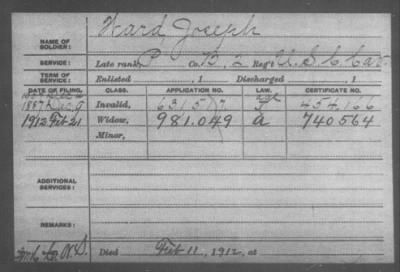 NAME OF SOLDIER: Ward Joseph
SERVICE: Late rank P Co. B, 2 Reg't U.S.C. Cav.
TERM OF SERVICE: Enlisted , 1 Discharged , 1
DATE OF FILING. CLASS. APPLICATION NO. LAW. CERTIFICATE NO.
1887 Dec 9 Invalid, 631517 454166
1912 Feb 21 Widow, 981.049 a 740564
Minor,
ADDITIONAL SERVICES:
REMARKS:
Died Feb 11, 1912, at